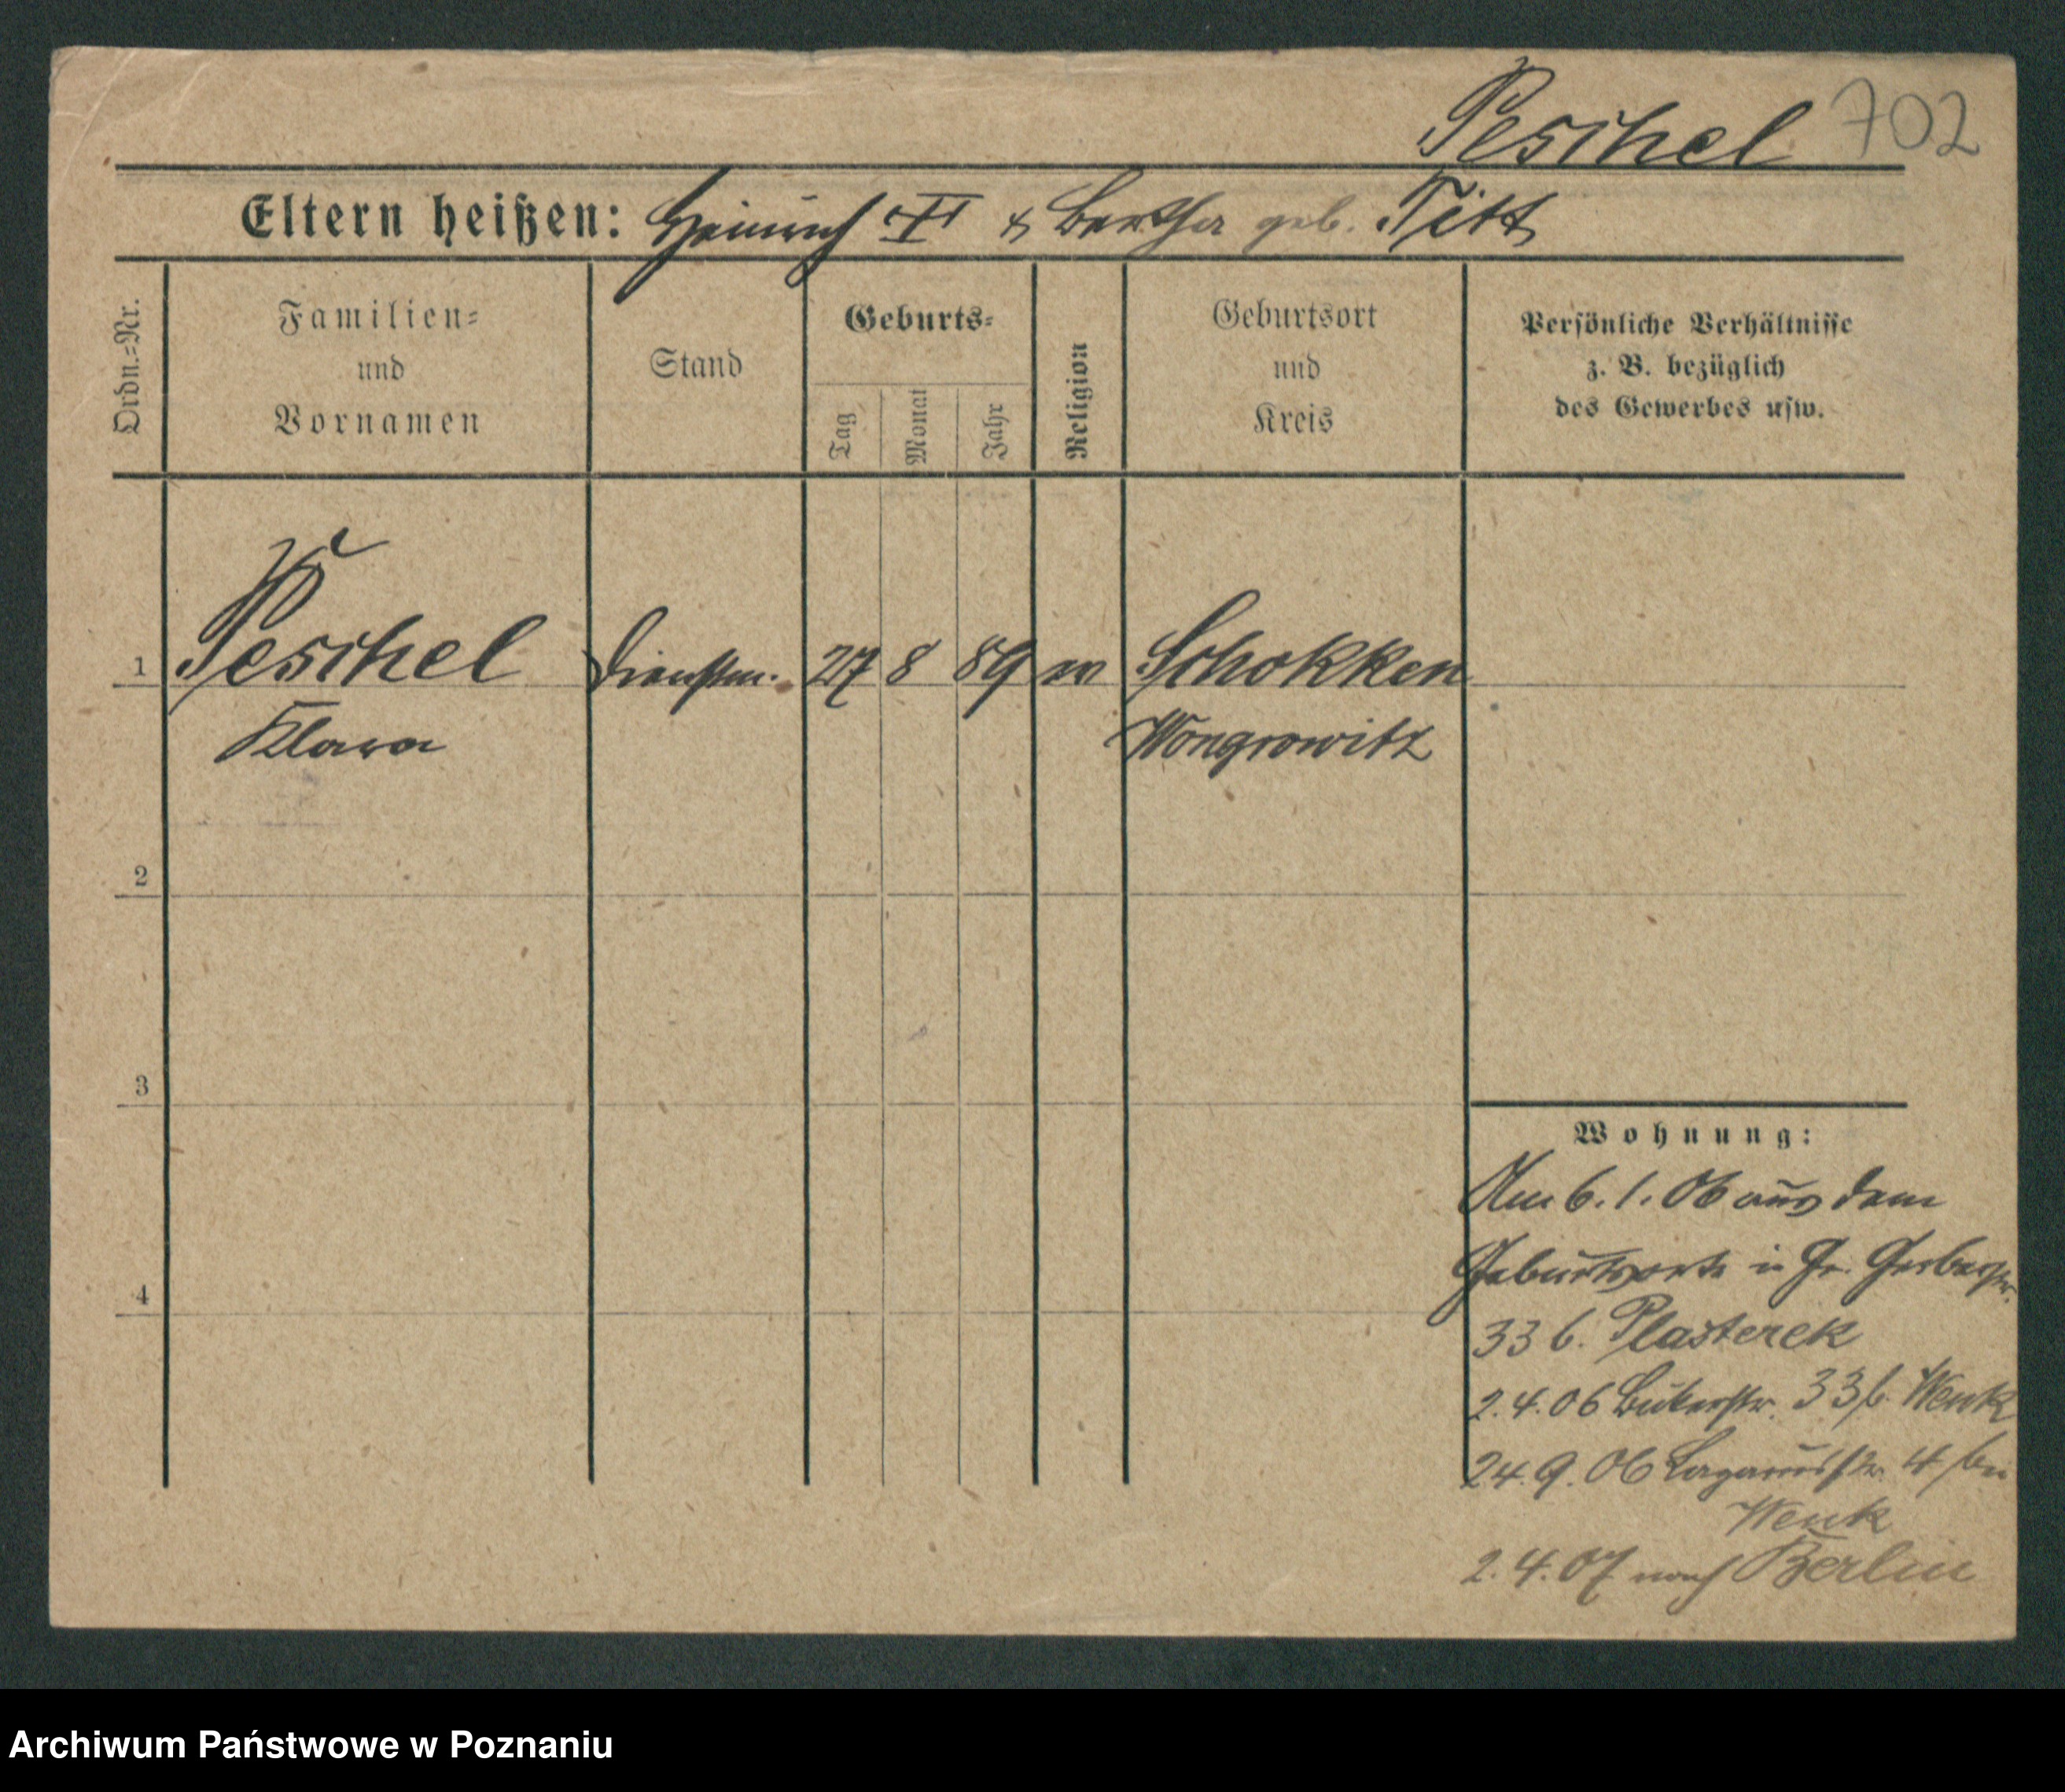 Peschel 702
Eltern heißen: Heinrich & Bertha geb. Titt
Ordn.=Nr.
Familien=
und
Vornamen
Stand
Geburts=
Tag
Monat
Jahr
Religion
Geburtsort
und
Kreis
Persönliche Verhältnisse
z. B. bezüglich
des Gewerbes usw.
1 Peschel Dienstm. 27 8 89 Schokken
Klara Wongrowitz
2
3
4
Wohnung:
Am 6. 1. 06 aus dem
Geburtsorte in Gr. Gerberstr.
33 b. Plasterek
2. 4. 06 Bukerstr. 33 b. Wenk
24. 9. 06 4 bei
Wenk
2. 4. 07 nach Berlin
Archiwum Państwowe w Poznaniu